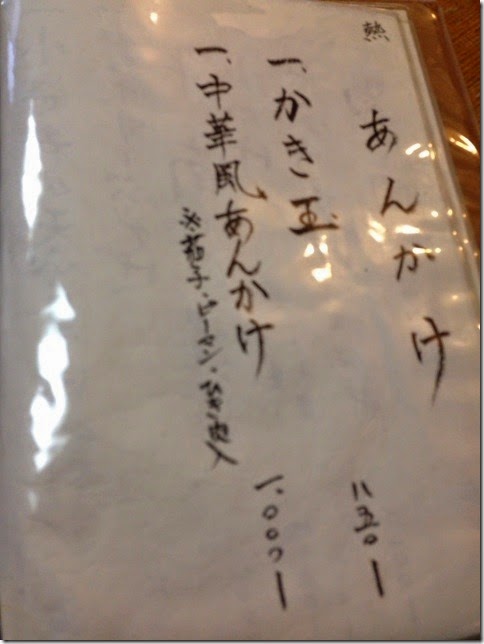 熱
あんかけ
一、かき玉 八五〇ー
一、中華風あんかけ 一、〇〇〇ー
※茄子・ピーマン・ひき肉入